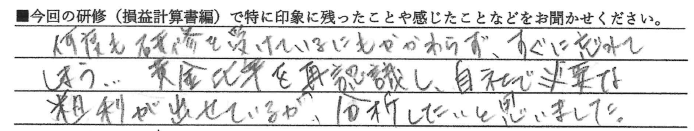 ■今回の研修（損益計算書編）で特に印象に残ったことや感じたことなどをお聞かせください。
何度も研修を受けているにもかかわらず、すぐに忘れて
しまう… 黄金比率を再認識し、自社で必要な
粗利が出せているか、分析したいと思いました。